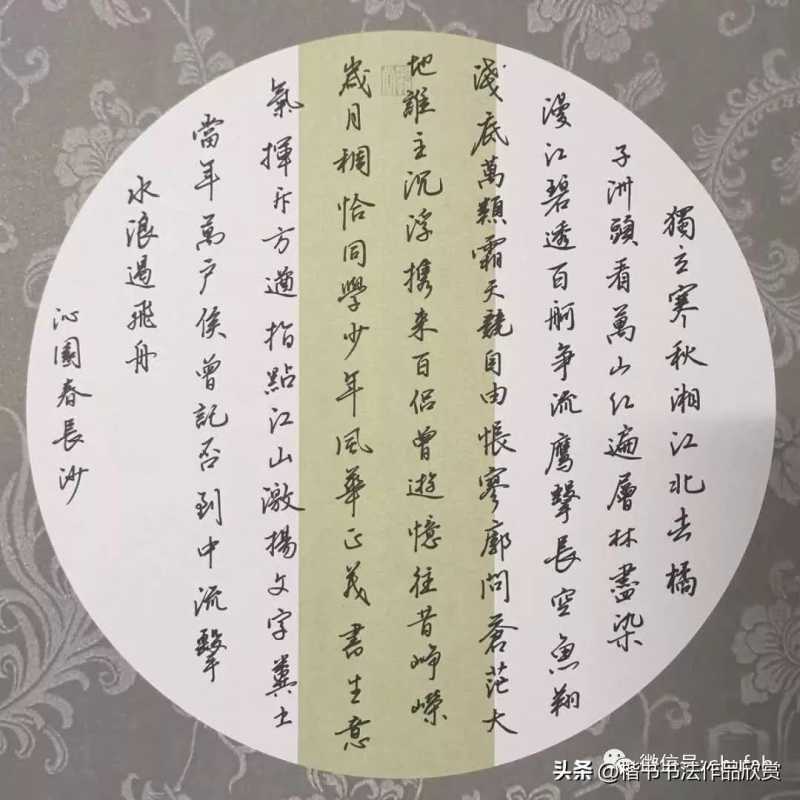 獨立寒秋湘江北去橘
子洲頭看萬山红遍層林盡染
漫江碧透百舸争流鹰擊長空魚翔
淺底萬類霜天競自由悵寥廓問蒼茫大
地誰主沉浮携来百侣曾遊憶往昔峥嶸
歲月稠恰同學少年風華正茂書生意
氣揮斥方遒指點江山激揚文字糞土
當年萬户侯曾記否到中流擊
水浪遏飛舟
沁園春長沙
微信号:
头条 @楷书书法作品欣赏